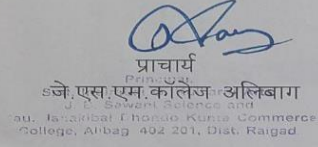 प्राचार्य
Principal,
जे.एस.एम.कॉलेज अलिबाग
J. B. Sawant Science and
au. Janakibai Dhondo Kunte Commerce
College, Alibag 402 201, Dist. Raigad